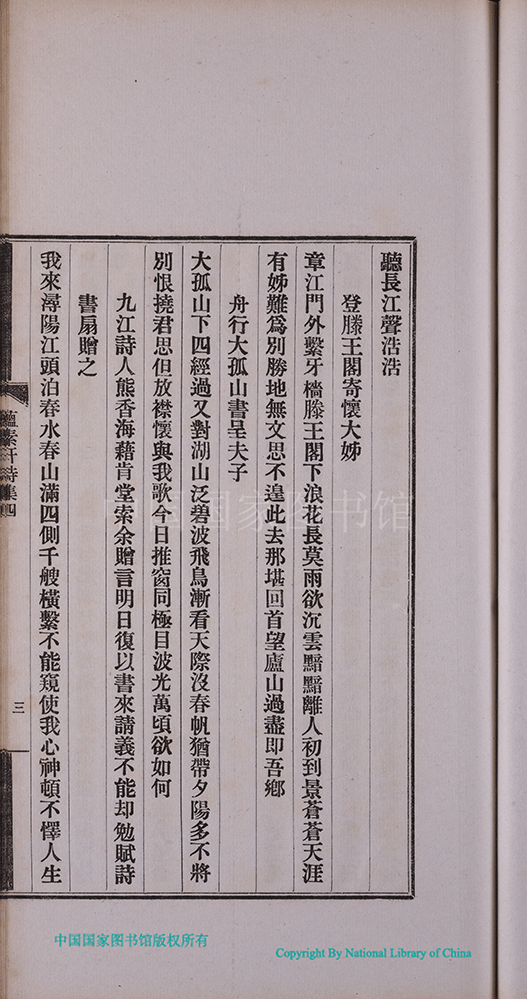 聽長江聲浩浩
登滕王閣寄懷大姊
章江門外繫牙檣滕王閣下浪花長莫雨欲沉雲黯黯離人初到景蒼蒼天涯
有姊難爲別勝地無文思不遑此去那堪回首望廬山過盡即吾鄉
舟行大孤山書呈夫子
大孤山下四經過又對湖山泛碧波飛鳥漸看天際沒春帆猶帶夕陽多不將
別恨撓君思但放襟懷與我歌今日推窗同極目波光萬頃欲如何
九江詩人熊香海藉肯堂索余贈言明日復以書來請義不能却勉賦詩
書扇贈之
我來潯陽江頭泊春水春山滿四側千艘橫繫不能窺使我心神頓不懌人生
蘊素軒詩集四
三
中国国家图书馆
中国国家图书馆版权所有
Copyright By National Library of China